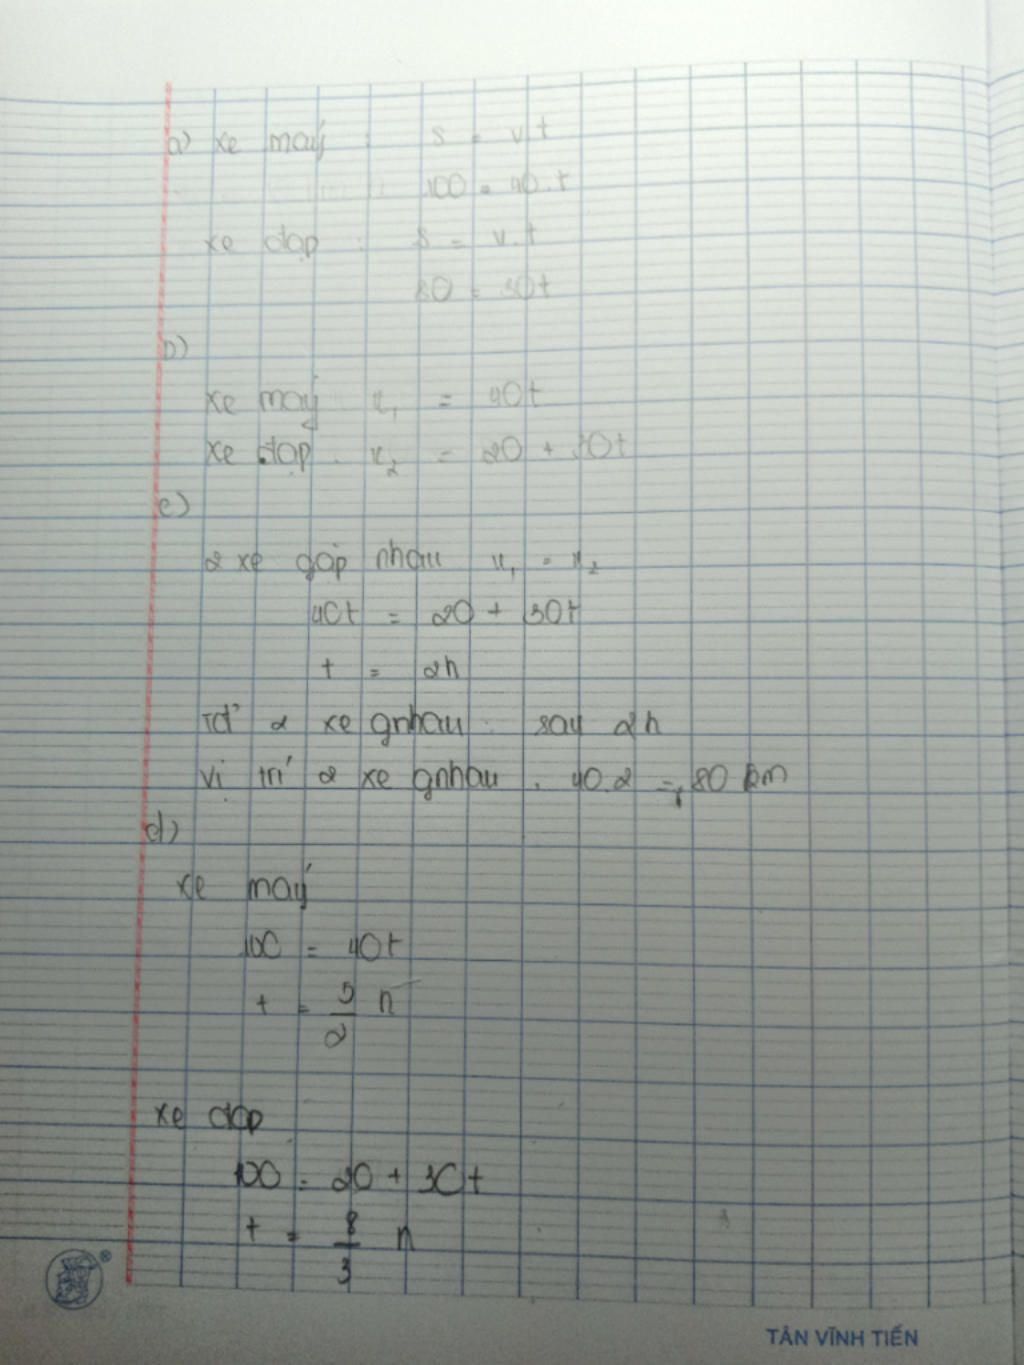 a) xe máy : s = v.t
100 = 40.t
xe đạp : s = v.t
80 = 30t
b)
xe máy x₁ = 40t
xe đạp . x₂ = 20 + 30t
c)
2 xe gặp nhau x₁ = x₂
40t = 20 + 30t
t = 2h
2 xe gnhau : say 2h
vị trí 2 xe gnhau . 40.2 = 80 km
d)
xe máy
100 = 40t
t = 5/2 h
xe đạp
100 = 20 + 30t
t = 8/3 h
TÂN VĨNH TIẾN